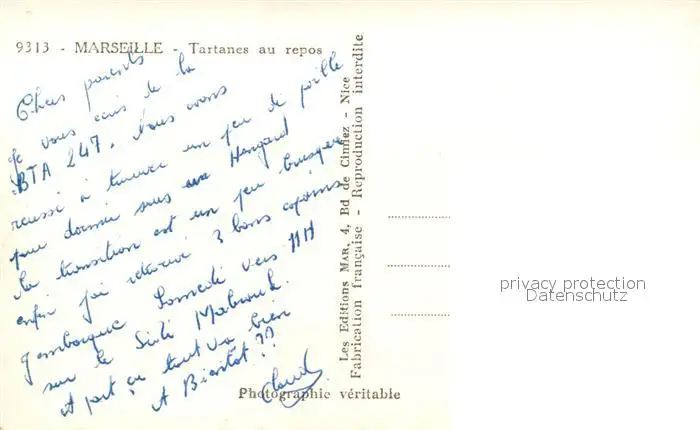 9313 - MARSEILLE - Tartanes au repos
Chers parents
Je vous écris de la
BTA 247. Nous avons
réussi à trouver un peu de paille
pour dormir sous un Hangard
la transition est un peu brusque
enfin j'ai retrouvé 3 bons copains
J'embarque Samedi vers 11H
sur le Sidi Mabrouk.
A part ça tout va bien
A Bientôt ??
Claude
Les Editions MAR, 4, Bd de Cimiez - Nice
Fabrication française - Reproduction interdite
Photographie véritable
privacy protection
Datenschutz